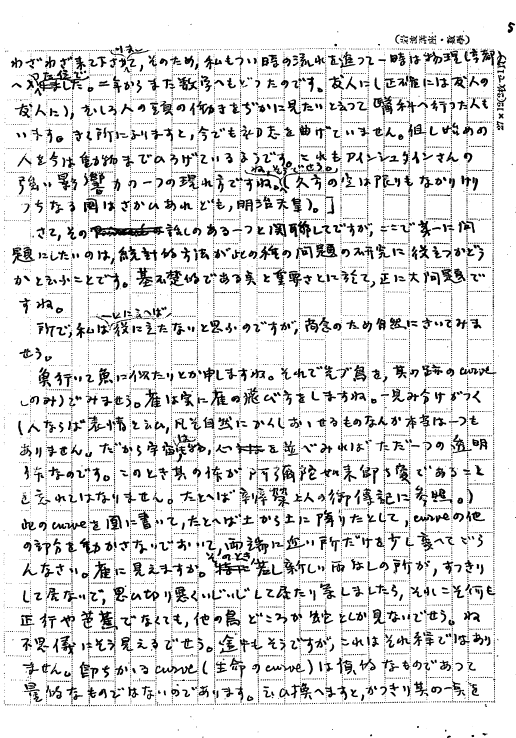 5
わざわざ来て下さって,そのため,私もつい時の流れを追つて一時は物理(京都)
へ 。二年からまた数学へもどつたのです。友人に(正確には友人の
友人に),むしろ人の の働きをぢかに見たいと云つて医科へ行つた人も
います。きく所によりますと,今でも初志を曲げていません。但し始めの
人を今は動物までひろげているようです。これもアインシュタインさんの
強い影響力の一つの現れ方ですね。(久方の空は限りもなかりけり
つちなる国はさかひあれども,明治天皇)。]
さて,その 話しのある一つと関聯してですが,ここで第一に問
題にしたいのは,統計的方法が此の種の問題の研究に役立つかどう
かと云ふことです。基礎的である点と重要さとに於て,正に大問題で
すね。
所で,私は役に立たないと思ふのですが,尚念のため自然にきいてみま
せう。
魚行いて魚に似たりとか申しますね。それで先づ鳥を,其の跡のcurve
(のみ)でみませう。雀は実に雀の飛び方をしますね。一見み分けがつく
(人ならば表情と云ひ,凡そ自然にかくしおいせるものなんか本当は一つも
ありません。だから宇宙は, を並べみればただ一つの透明
体なのです。このとき其の体が阿彌陀如来御自愛であること
を忘れてはなりません。たとへば 上人の御傳記に参照。)
此のcurveを図に書いて,たとへば土から土に降りたとして,curveの他
の部分を動かさないでおいて,両端に近い所だけを少し変へてごら
んなさい。雀に見えますか。 若し新しい両はしの所が,すつきり
して居ないで,思ひ切り悪くいじいじして居たり等しましたら,それこそ何も
正行や芭蕉でなくても,他の鳥どころか蛇としか見ないでせう。ね
不思儀にそう見えるでせう。途中もそうですが,これはそれ程ではあり
ません。即ちかゝるcurve(生命のcurve)は質的なものであつて
量的なものではないのであります。云ひ換へますと,かつきり其の一点を